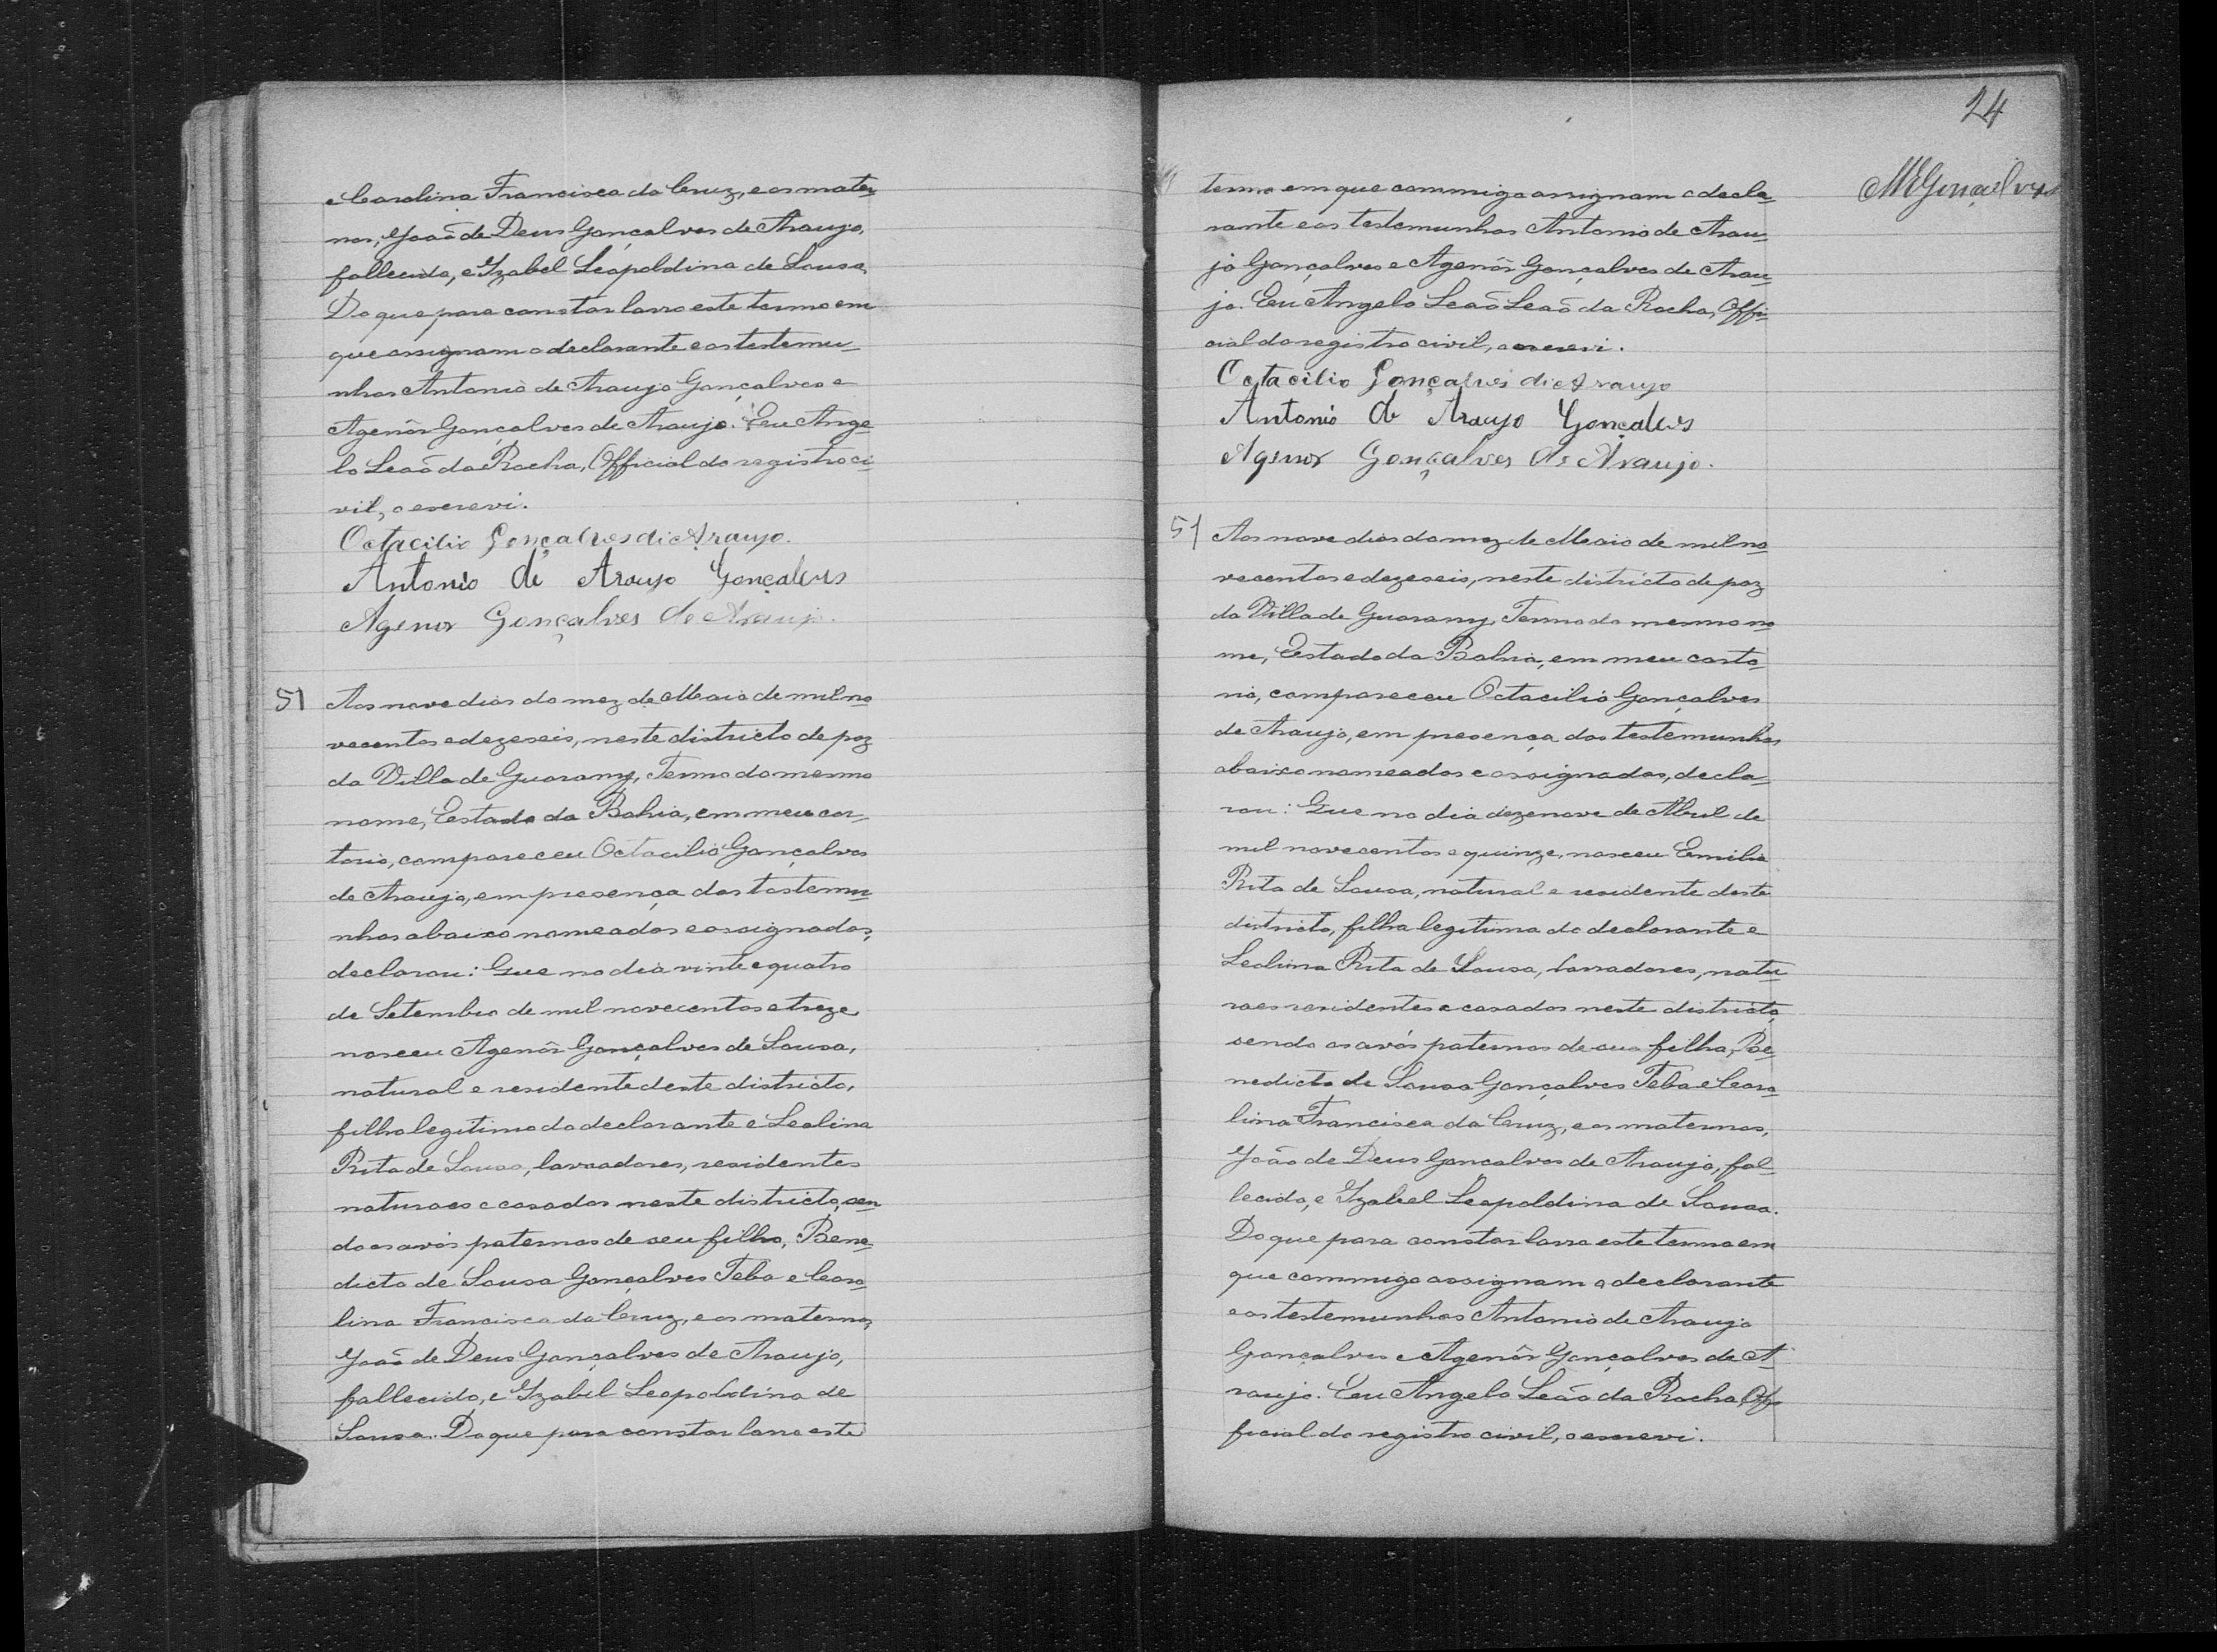 e Carolina Francisca da Cruz, e os mater-
nos, João de Deus Gonçalves de Araujo,
fallecido, e Izabel Leopoldina de Sousa.
Do que para constar lavro este termo em
que assignam o declarante e as testemu-
nhas Antonio de Araujo Gonçalves e
Agenôr Gonçalves de Araujo. Eu Ange-
lo Leaõ da Rocha, Official do registro ci-
vil, o escrevi.
Octacilio Gonçalves di Araujo.
Antonio de Araujo Gonçalves
Agenor Gonçalves de Araujo.
51 Aos nove dias do mez de Maio de mil no-
vecentos e dezeseis, neste districto de paz
da Villa de Guarany, Termo do mesmo
nome, Estado da Bahia, em meu car-
torio, compareceu Octacilio Gonçalves
de Araujo, em presença das testemu-
nhas abaixo nomeadas e assignadas,
declarou: Que no dia vinte e quatro
de Setembro de mil novecentos e treze,
nasceu Agenôr Gonçalves de Sousa,
natural e residente deste districto,
filho legitimo do declarante e Leolina
Rita de Sousa, lavradores, residentes
naturaes e casados neste districto, sen-
do os avós paternos de seu filho, Bene-
dicto de Sousa Gonçalves Teba e Caro-
lina Francisca da Cruz, e os maternos,
João de Deus Gonçalves de Araujo,
fallecido, e Izabel Leopoldina de
Sousa. Do que para constar lavro este
24
MGonçalves
termo em que commigo assignam o decla-
rante e as testemunhas Antonio de Arau-
jo Gonçalves e Agenôr Gonçalves de Arau-
jo. Eu Angelo Leaõ Leaõ da Rocha, Offi-
cial do registro civil, o escrevi.
Octacilio Gonçalves di Araujo
Antonio de Araujo Gonçalves
Agenor Gonçalves de Araujo.
51 Aos nove dias do mez de Maio de mil no-
vecentos e dezeseis, neste districto de paz
da Villa de Guarany, Termo do mesmo no-
me, Estado da Bahia, em meu carto-
rio, compareceu Octacilio Gonçalves
de Araujo, em presença das testemunhas
abaixo nomeadas e assignadas, decla-
rou: Que no dia dezenove de Abril de
mil novecentos e quinze, nasceu Emilia
Rita de Sousa, natural e residente deste
districto, filha legitima do declarante e
Leolina Rita de Sousa, lavradores, natu-
raes residentes e casados neste districto,
sendo os avós paternos de sua filha, Be-
nedicto de Sousa Gonçalves Teba e Caro-
lina Francisca da Cruz, e os maternos,
João de Deus Gonçalves de Araujo, fal-
lecido, e Izabel Leopoldina de Sousa.
Do que para constar lavro este termo em
que commigo assignam o declarante
e as testemunhas Antonio de Araujo
Gonçalves e Agenôr Gonçalves de A-
raujo. Eu Angelo Leão da Rocha, Of-
ficial do registro civil, o escrevi.